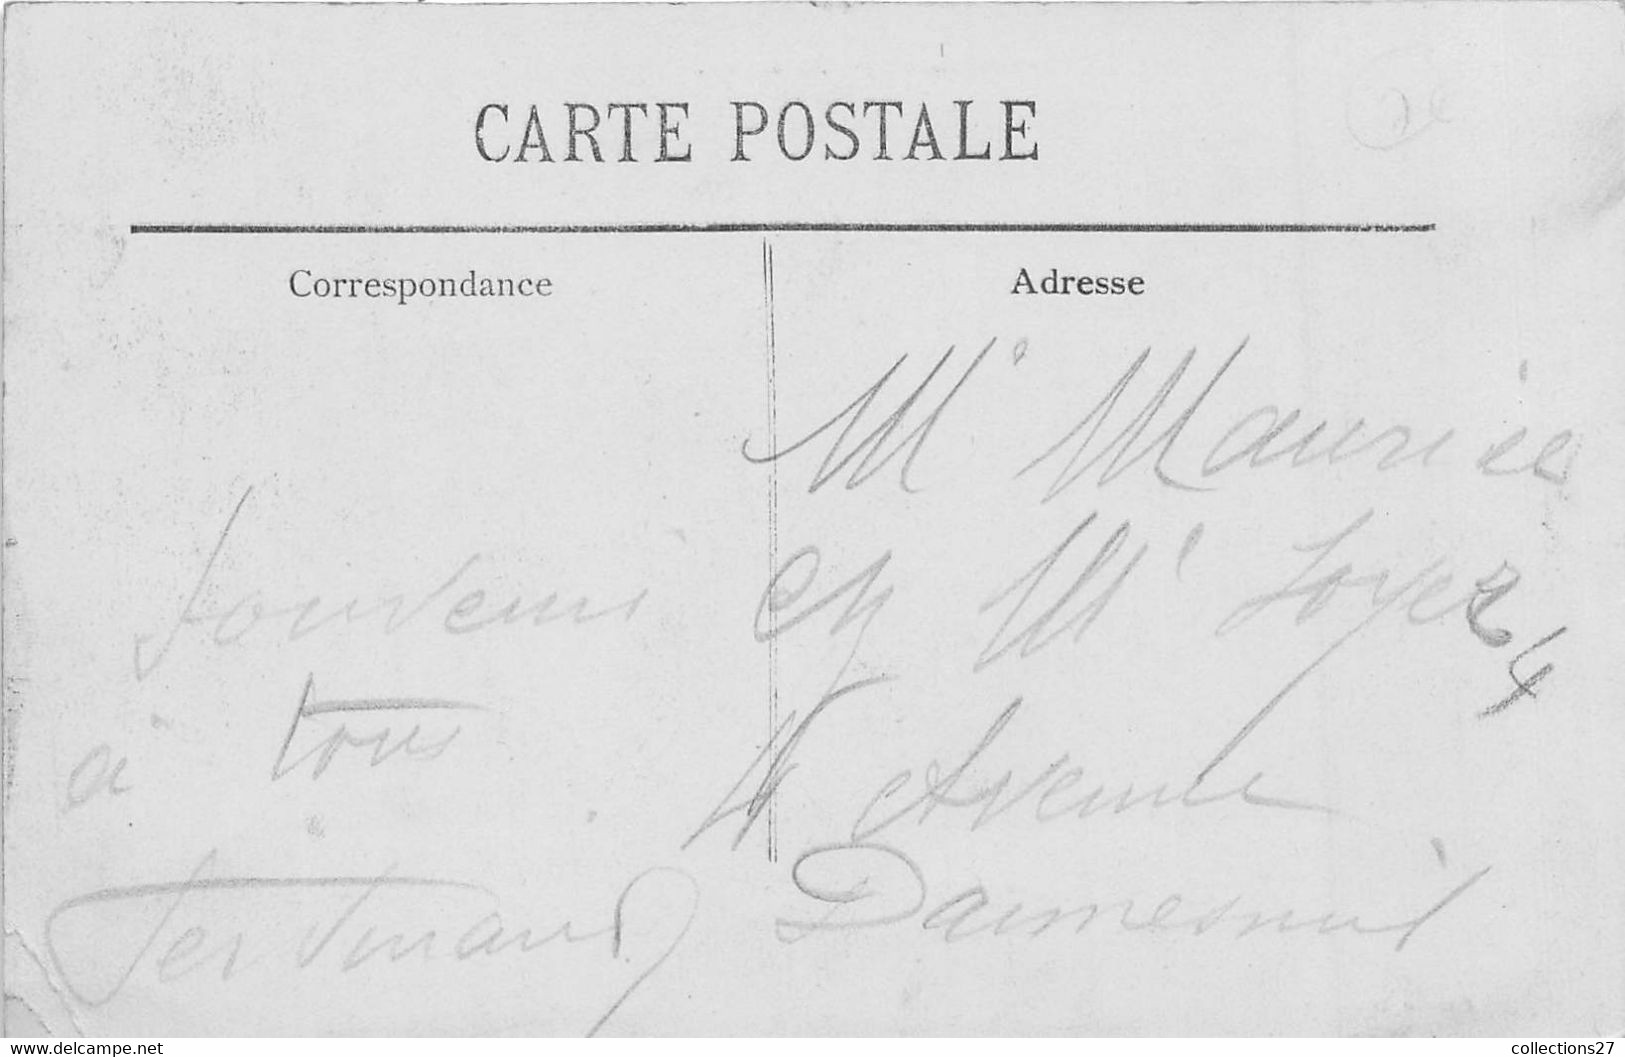 CARTE POSTALE
Correspondance
Souvenir
à tous
Ferdinand
Adresse
Mr Maurice
chez Mr Loyer
Avenue
Daumesnil
www.delcampe.net
collections27